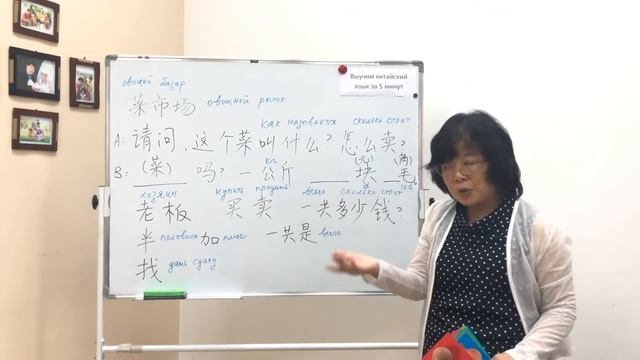 Выучим китайский
язык за 5 минут
овощной базар
菜市场 овощной рынок
как называется сколько стоит
A: 请问，这个菜叫什么？怎么卖？
кг (元) (角)
B: (菜) 吗？一公斤 块 毛
хозяин купить продать всего сколько стоит
老板 买 卖 一共多少钱？
半 половина 加 плюс 一共是 всего
找 дать сдачу